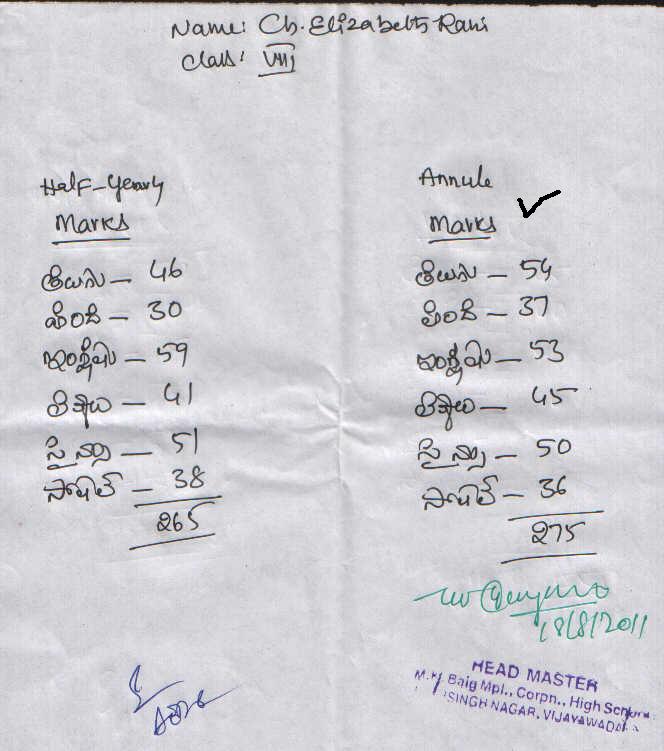 Name: Ch. Elizabeth Rani
Class: VIII
Half-Yearly
Marks
తెలుగు - 46
హిందీ - 30
ఇంగ్లీషు - 59
లెక్కలు - 41
సైన్సు - 51
సోషల్ - 38
265
Annule
Marks ✓
తెలుగు - 54
హిందీ - 37
ఇంగ్లీషు - 53
లెక్కలు - 45
సైన్సు - 50
సోషల్ - 36
275
18/8/2011
HEAD MASTER
Baig Mpl., Corpn., High School
SINGH NAGAR, VIJAYAWADA